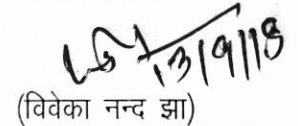 13/9/18
(विवेका नन्द झा)